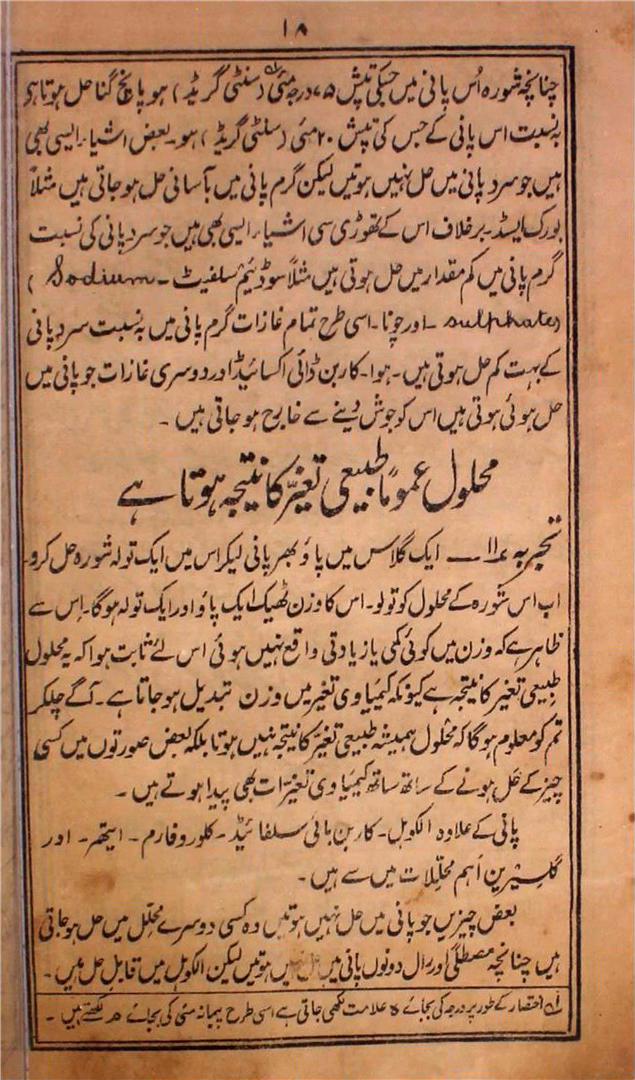 ۱۸
چنانچہ شورہ اُس پانی میں جسکی تپش ۷۵ درجہ مئی (سنٹی گریڈ) ہو پانچ گنا حل ہوتا ہی
بہ نسبت اس پانی کے جس کی تپش ۲۰ مئی (سنٹی گریڈ) ہو۔ بعض اشیاء ایسی بھی
ہیں جو سرد پانی میں حل نہیں ہوتیں لیکن گرم پانی میں بآسانی حل ہو جاتی ہیں مثلاً
بورک ایسڈ۔ برخلاف اس کے تھوڑی سی اشیاء ایسی بھی ہیں جو سرد پانی کی نسبت
گرم پانی میں کم مقدار میں حل ہوتی ہیں مثلاً سوڈیئم سلفیٹ۔ (Sodium
sulphate) اور چونا۔ اسی طرح تمام غازات گرم پانی میں بہ نسبت سرد پانی
کے بہت کم حل ہوتی ہیں۔ ہوا۔ کاربن ڈائی اکسائیڈ اور دوسری غازات جو پانی میں
حل ہوئی ہوتی ہیں اس کو جوش دینے سے خارج ہو جاتی ہیں۔
محلول عموماً طبیعی تغیّر کا نتیجہ ہوتا ہے
تجربہ ۱۱ــ ایک گلاس میں پاؤ بھر پانی لیکر اس میں ایک تولہ شورہ حل کرو۔
اب اس شورہ کے محلول کو تولو۔ اس کا وزن ٹھیک ایک پاؤ اور ایک تولہ ہوگا۔ اِس سے
ظاہر ہے کہ وزن میں کوئی کمی یا زیادتی واقع نہیں ہوئی اس لئے ثابت ہوا کہ یہ محلول
طبیعی تغیر کا نتیجہ ہے کیونکہ کیمیاوی تغیر میں وزن تبدیل ہو جاتا ہے۔ آگے چلکر
تم کو معلوم ہوگا کہ محلول ہمیشہ طبیعی تغیّر کا نتیجہ نہیں ہوتا بلکہ بعض صورتوں میں کسی
چیز کے حل ہونے کے ساتھ ساتھ کیمیاوی تغیرات بھی پیدا ہوتے ہیں۔
پانی کے علاوہ الکوہل۔ کاربن بائی سلفائیڈ۔ کلوروفارم۔ ایتھر۔ اور
گلسیرین اہم محلّلات میں سے ہیں۔
بعض چیزیں جو پانی میں حل نہیں ہوتیں وہ کسی دوسرے محلل میں حل ہو جاتی
ہیں چنانچہ مصطگی اور رال دونوں پانی میں حل نہیں ہوتیں لیکن الکوہل میں قابل حل ہیں۔
اختصار کے طور پر درجہ کی بجائے ° علامت لکھی جاتی ہے اسی طرح پیمانہ مئی کی بجائے ھر لکھتے ہیں۔